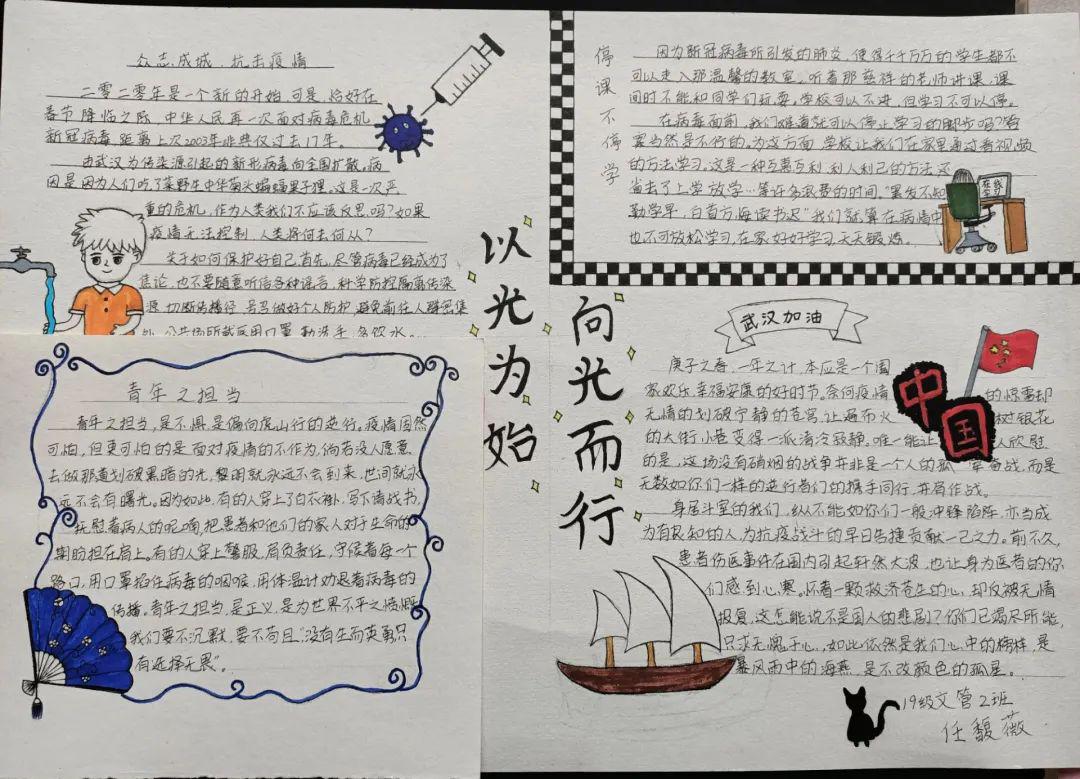 众志成城,抗击疫情
二零二零年是一个新的开始,可是,恰好在
春节降临之际,中华人民再一次面对病毒危机
新冠病毒,距离上次2003年非典仅过去17年。
由武汉为传染源引起的新形病毒向全国扩散,病
因是因为人们吃了菜野生中华菊头蝙蝠果子狸。这是一次严
重的危机,作为人类我们不应该反思吗?如果
疫情无法控制,人类将何去何从?
关于如何保护好自己首先,尽管病毒已经成为了
焦论,也不要随意听信各种谣言,科学防控隔离传染
源,切断传播径,另马做好个人防护,避免前往人群密集
公共场所就采用口罩,勤洗手,多饮水…
青年之担当
青年之担当,是不惧是偏向虎山行的逆行。疫情固然
可怕,但更可怕的是面对疫情的不作为,倘若没人愿意
去做那道划破黑暗的光,黎明就永远不会到来,世间就永
远不会有曙光。因为如此,有的人穿上了白衣褂,写下请战书,
抚慰着病人的呢喃,把患者和他们的家人对于生命的
期盼担在肩上。有的人穿上警服,肩负责任,守候着每一个
路口,用口罩掐住病毒的咽喉,用体温计劝退着病毒的
传播。青年之担当,是正义,是为世界不平之愤慨
我们要不沉默,要不苟且"没有生而英勇只
有选择无畏"。
以光为始
向光而行
停课不停学
因为新冠病毒所引发的肺炎,使得千千万万的学生都不
可以走入那温馨的教室,听着那慈祥的老师讲课,课
间时不能和同学们玩耍。学校可以不进,但学习不可以停。
在病毒面前,我们难道就可以停止学习的脚步吗?答
案当然是不行的。为这方面,学校让我们在家里通过看视频
的方法学习,这是一种互惠互利,利人利己的方法,还
省去了上学放学…等许多浪费的时间。"黑发不知
勤学早,白首方悔读书迟"我们就算在病情中
也不可放松学习,在家好好学习,天天锻炼。
在线
学习
武汉加油
庚子之春,一年之计,本应是一个国
家欢乐,幸福安康的好时节。奈何疫情 的惊雷却
无情的划破宁静的苍穹,让遍布火 树银花
的大街小巷变得一派清冷寂静,唯一能让 人欣慰
的是,这场没有硝烟的战争并非是一个人的孤 军奋战,而是
无数如你们一样的逆行者们的携手同行,并肩作战。
中国
身居斗室的我们,纵不能如你们一般冲锋陷阵,亦当成
为有良知的人,为抗疫战斗的早日告捷贡献一己之力。前不久,
患者伤医事件在国内引起轩然大波,也让身为医者的你
们感到心寒。怀着一颗救济苍生的心,却仅被无情
报复,这怎能说不是国人的悲剧?你们已竭尽所能,
只求无愧于心,如此依然是我们心中的榜样,是
暴风雨中的海燕,是不改颜色的孤星。
19级文管2班
任馥薇